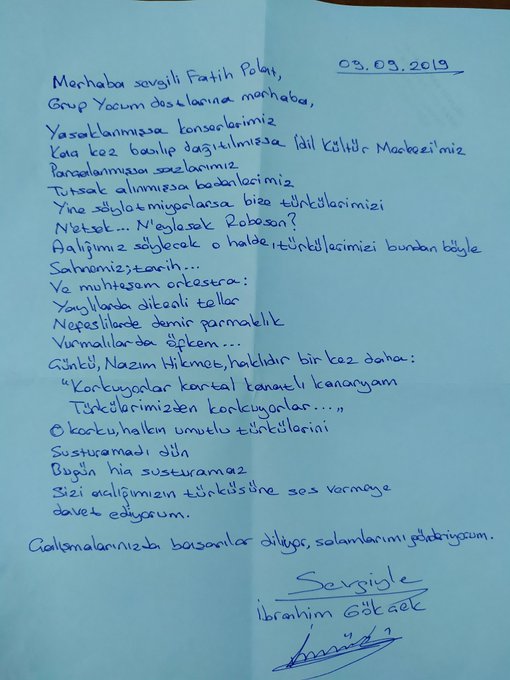 09.09.2019
Merhaba sevgili Fatih Polat,
Grup Yorum dostlarına merhaba,
Yasaklanmışsa konserlerimiz
Kaç kez basılıp dağıtılmışsa İdil Kültür Merkezi'miz
Parçalanmışsa sazlarımız
Tutsak alınmışsa bedenlerimiz
Yine söyletmiyorlarsa bize türkülerimizi
N'etsek... N'eylesek Robeson?
Açlığımız söylecek o halde, türkülerimizi bundan böyle
Sahnemiz; tarih...
Ve muhteşem orkestra:
Yaylılarda dikenli teller
Nefeslilerde demir parmaklık
Vurmalılarda öfkem...
Çünkü, Nazım Hikmet, haklıdır bir kez daha:
"Korkuyorlar kartal kanatlı kanaryam
Türkülerimizden korkuyorlar..."
O korku, halkın umutlu türkülerini
Susturamadı dün
Bugün hiç susturamaz
Sizi açlığımızın türküsüne ses vermeye
davet ediyorum.
Çalışmalarınızda başarılar diliyor, selamlarımı gönderiyorum.
Sevgiyle
İbrahim GÖKÇEK